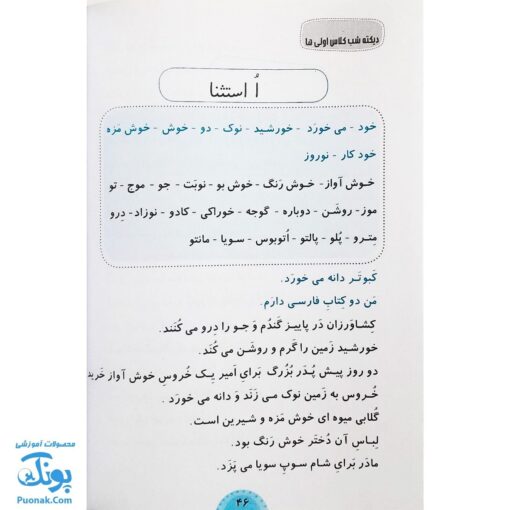 دیکته شب کلاس اولی ها
اُ استثنا
خود - می خورَد - خورشید - نوک - دو - خوش - خوش مَزه
خود کار - نوروز
خوش آواز - خوش رَنگ - خوش بو - نوبَت - جو - موج - تو
موز - روشَن - دوباره - گوجه - خوراکی - کادو - نوزاد - دِرو
مِترو - پُلو - پالتو - اُتوبوس - سویا - مانتو
کَبوتَر دانه می خورَد.
مَن دو کِتابِ فارسی دارَم.
کِشاوَرزان دَر پاییز گَندُم وَ جو را دِرو می کُنَند.
خورشید زَمین را گَرم وَ روشَن می کُنَد.
دو روز پیش پِدَر بُزُرگ بَرایِ اَمیر یِک خُروسِ خوش آواز خَرید
خُروس به زَمین نوک می زَنَد وَ دانه می خورَد .
گُلابی میوه ای خوش مَزه وَ شیرین است.
لِباسِ آن دُختَر خوش رَنگ بود.
مادَر بَرایِ شام سوپِ سویا می پَزَد.
۴۶
محصولات آموزشی
پونک
Puonak.Com